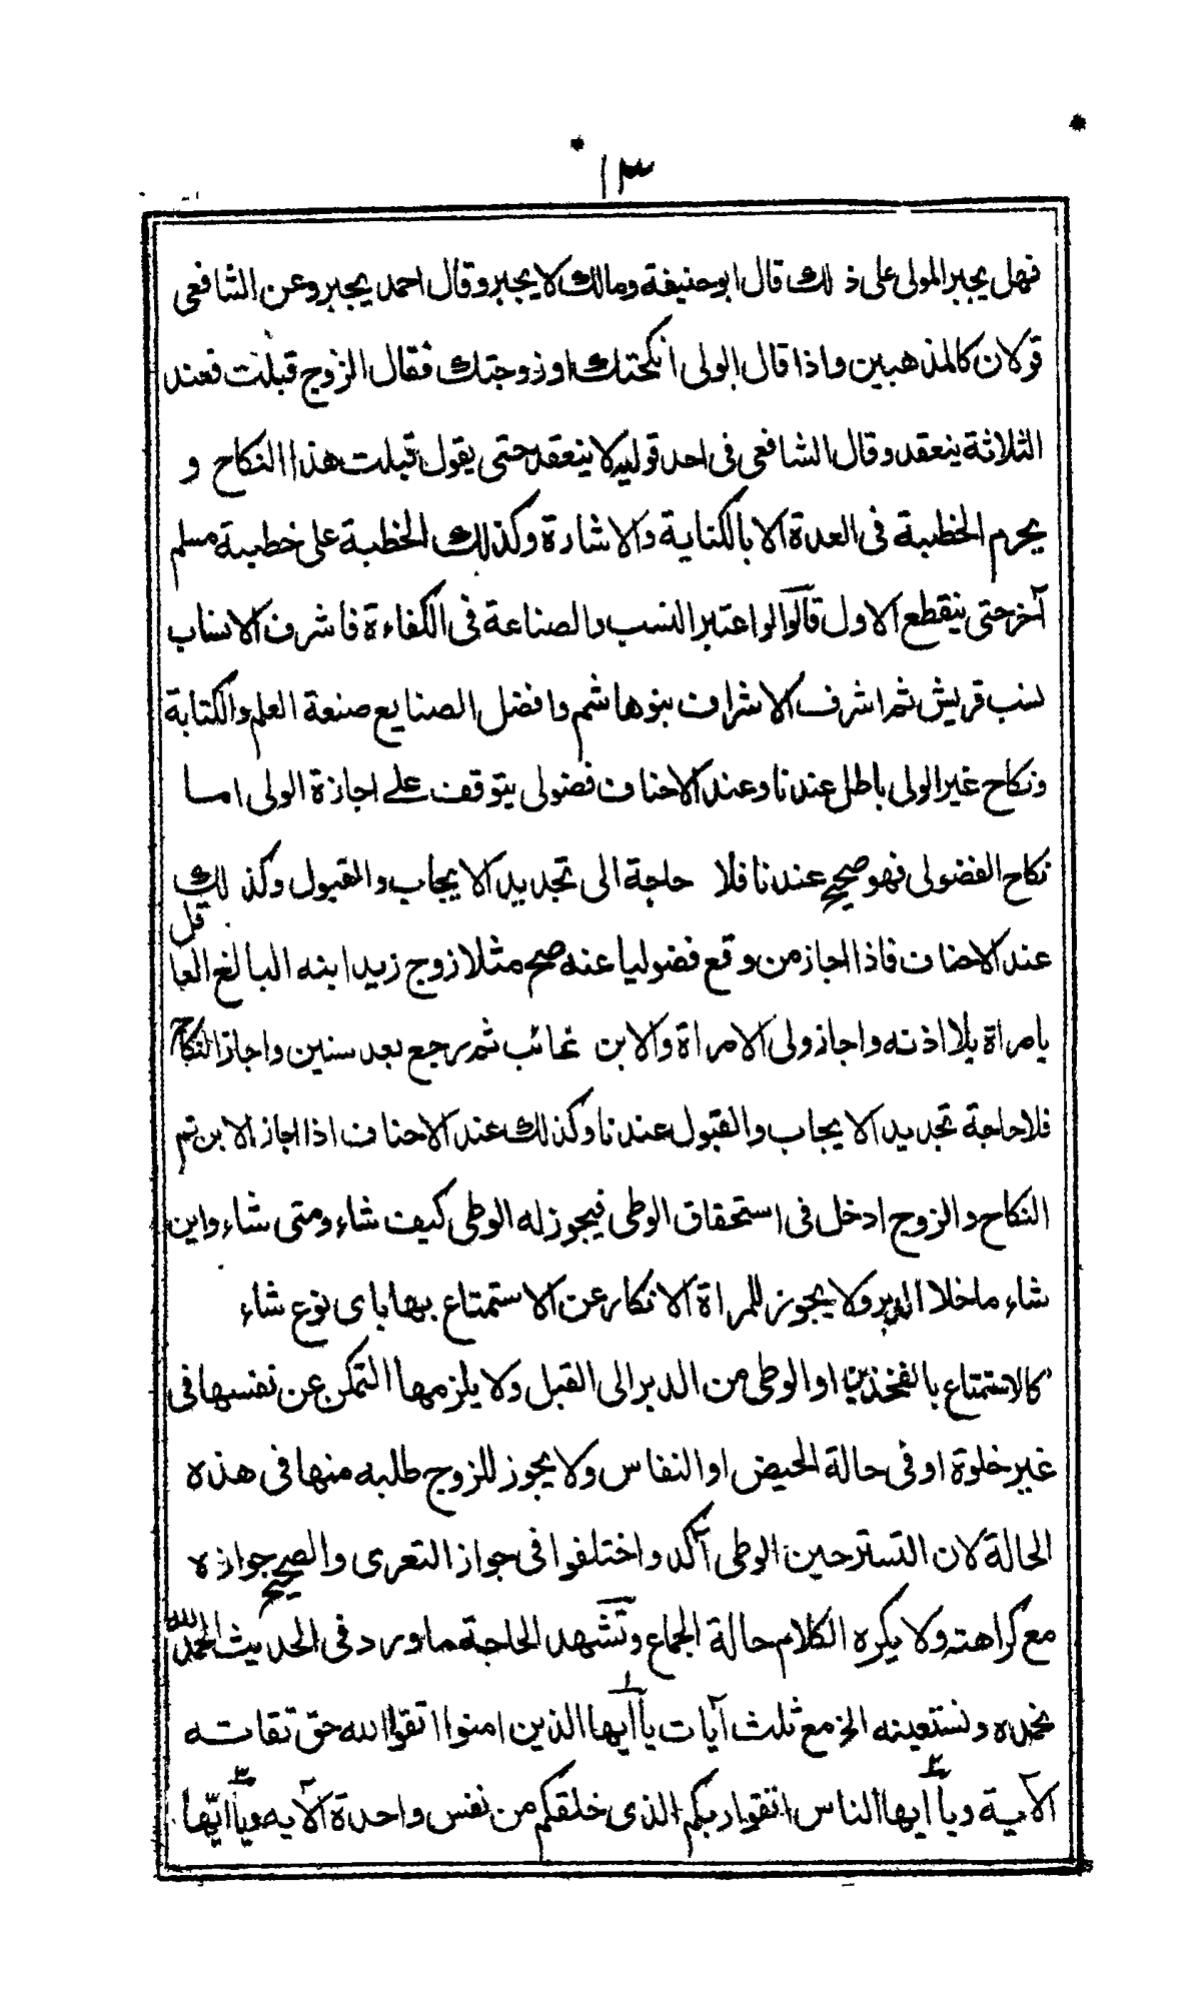 ١٣
فهل يجبر المولى على ذلك قال ابوحنيفة ومالك لا يجبر وقال احمد يجبر وعن الشافعى
قولان كالمذهبين واذا قال الولى انكحتك او زوجتك فقال الزوج قبلت فعند
الثلاثة ينعقد وقال الشافعى فى احد قوليه لا ينعقد حتى يقول قبلت هذا النكاح و
يحرم الخطبة فى العدة الا بالكناية والاشارة وكذلك الخطبة على خطبية مسلم
آخر حتى ينقطع الاول قالوا الواعتبر النسب والصناعة فى الكفاءة فاشرف الانساب
نسب قريش ثم اشرف الاشراف بنوهاشم وافضل الصنايع صنعة العلم والكتابة
ونكاح غير الولى باطل عندنا وعند الاحناف فضولى يتوقف على اجازة الولى اما
نكاح الفضولى فهو صحيح عندنا فلا حاجة الى تجديد الايجاب والقبول وكذلك
عند الاحناف فاذا اجاز من وقع فضوليا عنه صح مثلا زوج زيد ابنه البالغ العاقل
بامراة بلا اذنه واجاز ولى الامراة والابن غائب ثم رجع بعد سنين واجاز النكاح
فلا حاجة تجديد الايجاب والقبول عندنا وكذلك عند الاحناف اذا اجاز الابن تم
النكاح والزوج ادخل فى استحقاق الوطى فيجوز له الوطى كيف شاء ومتى شاء واين
شاء ماخلا الدبر ولا يجوز للمراة الانكار عن الاستمتاع بها باى نوع شاء
كالاستمتاع بالفخذين او الوطى من الدبر الى القبل ولا يلزمها التمكن عن نفسها فى
غير خلوة او فى حالة الحيض او النفاس ولا يجوز للزوج طلبه منها فى هذه
الحالة لان التستر حين الوطى آكد واختلفوا فى جواز التعرى والصحيح جوازه
مع كراهته ولا يكره الكلام حالة الجماع وتشهد الحاجة ما ورد فى الحديث الحمد لله
نحمده ونستعينه الخ مع ثلث آيات ١ ياآايها الذين امنوا اتقوا الله حق تقاته
الآية ٢ وياآايها الناس اتقوا ربكم الذى خلقكم من نفس واحدة الآيه ٣ وياايّها